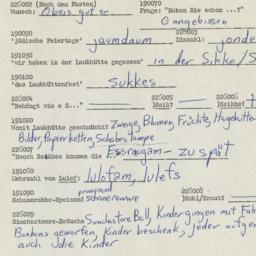 225002 (Nach dem Fasten) 190070
Wunsch: Obers gut er Frage: "Haben Sie schon ...?"
O angebissen
190090 225003
'Jüdische Feiertage' jaumdaum Einzahl: jonde
191030
'wir haben in der Laubhütte gegessen' in der Sikke/S
190100
'das Laubhüttenfest' sukkes
225004 225005 225006
"Behüft wie e S..." Seikt
191020
Womit Laubhütte geschmückt? Zwege, Blumen, Früchte, Hagebutte
Bilder, Papierketten, Schabbeslampe
225007
"Noch Sukkes kommen die Essraugam - zu spät
191060
Mehrzahl von Lulef: lulofam, lulefs
191090 225008
Schmanerabbe-Speisen? schmanerawwe Kohl/Kraut?
225009
Simchastoore-Bräuche Simchastore Ball, Kinder gingen mit Fah
Bonbons geworfen, Kinder beschenk, jeder aufger
auch die Kinder